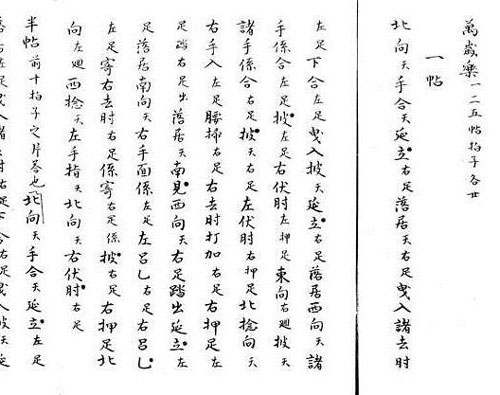 萬歲樂一二五帖拍子各廿
一帖
北向天手合天延立右足落居天右足曳入諸去肘
左足下合左足曳入披天延立右足落居西向天諸
手係合左足披左足右伏肘左押足東向右廻披天
諸手係合右足披天右足左伏肘右押足北捻向天
右手入左足腰掃右足右去肘打加右足右押足左
足踏右足出落居天南見西向天右足踏出延立左
足落居南向天右手面係左足左呂し右足右呂し
左足寄右去肘右足係寄右足係披右足右押足北
向左廻西捻天左手指天北向天右伏肘右足
半帖前十拍子之片荅也北向天手合天延立左足